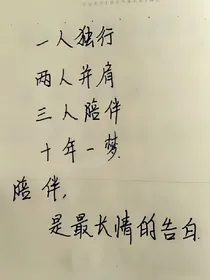 一人独行
两人并肩
三人陪伴
十年一梦
陪伴,
是最长情的告白